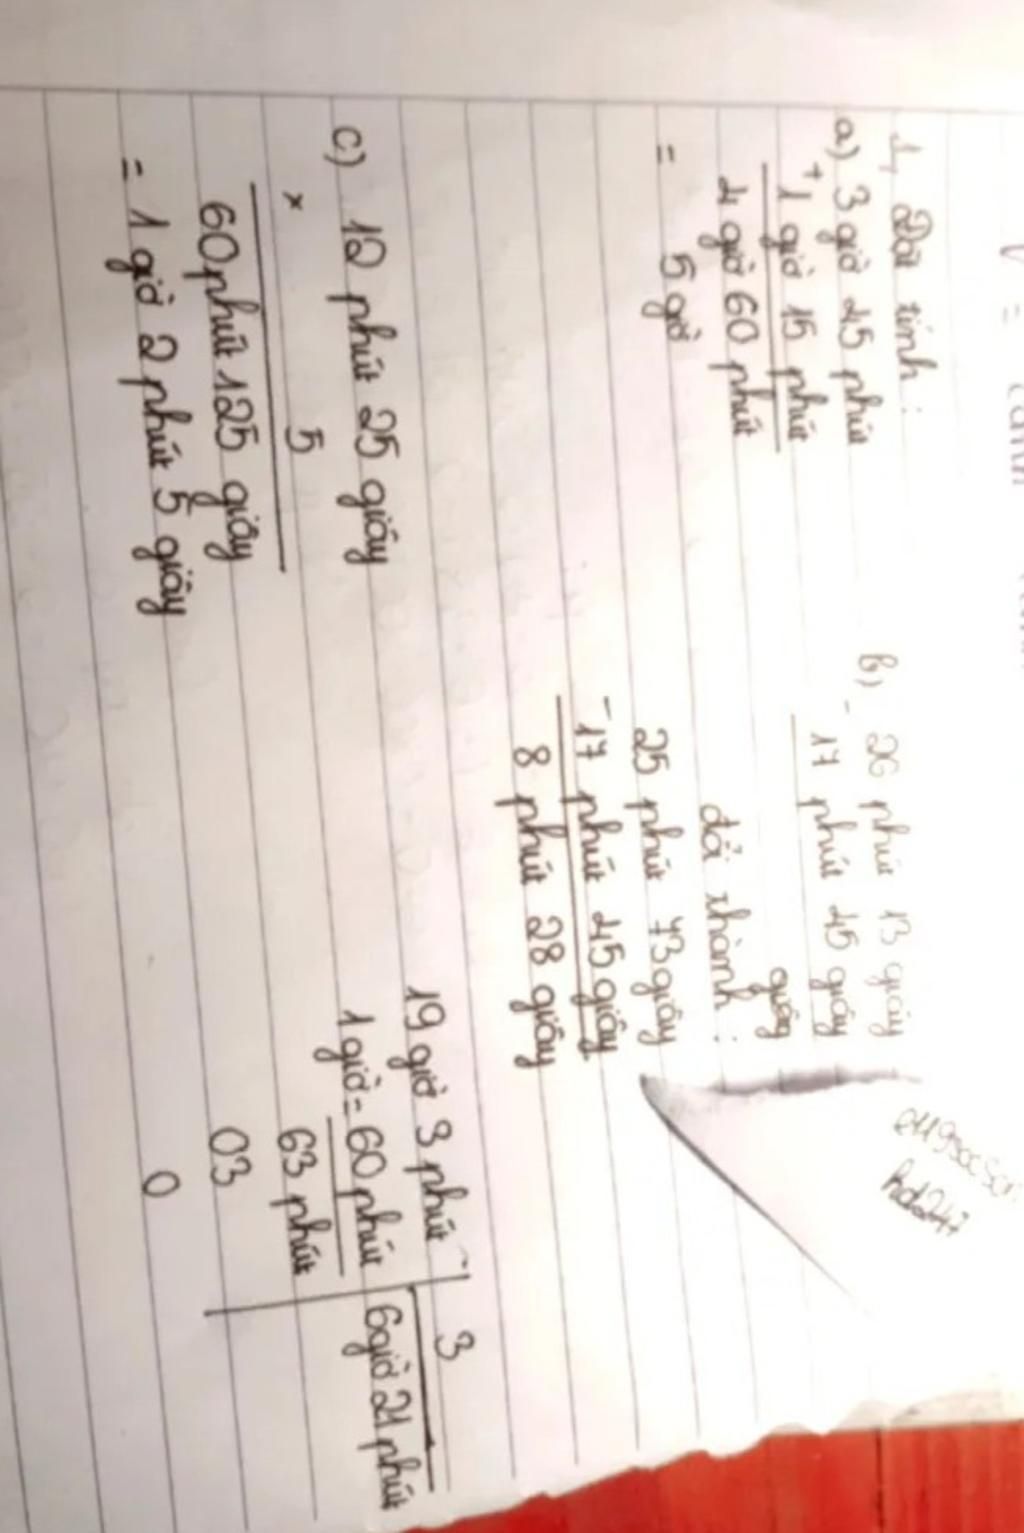 V =
1, Đặt tính :
a) 3 giờ 45 phút
+ 1 giờ 15 phút
4 giờ 60 phút
= 5 giờ
b) - 26 phút 13 giây
17 phút 45 giây
giây
đổi thành :
25 phút 73 giây
- 17 phút 45 giây
8 phút 28 giây
c) 12 phút 25 giây
× 5
60 phút 125 giây
= 1 giờ 2 phút 5 giây
19 giờ 3 phút 3
1 giờ = 60 phút 6 giờ 21 phút
63 phút
03
0
hd247